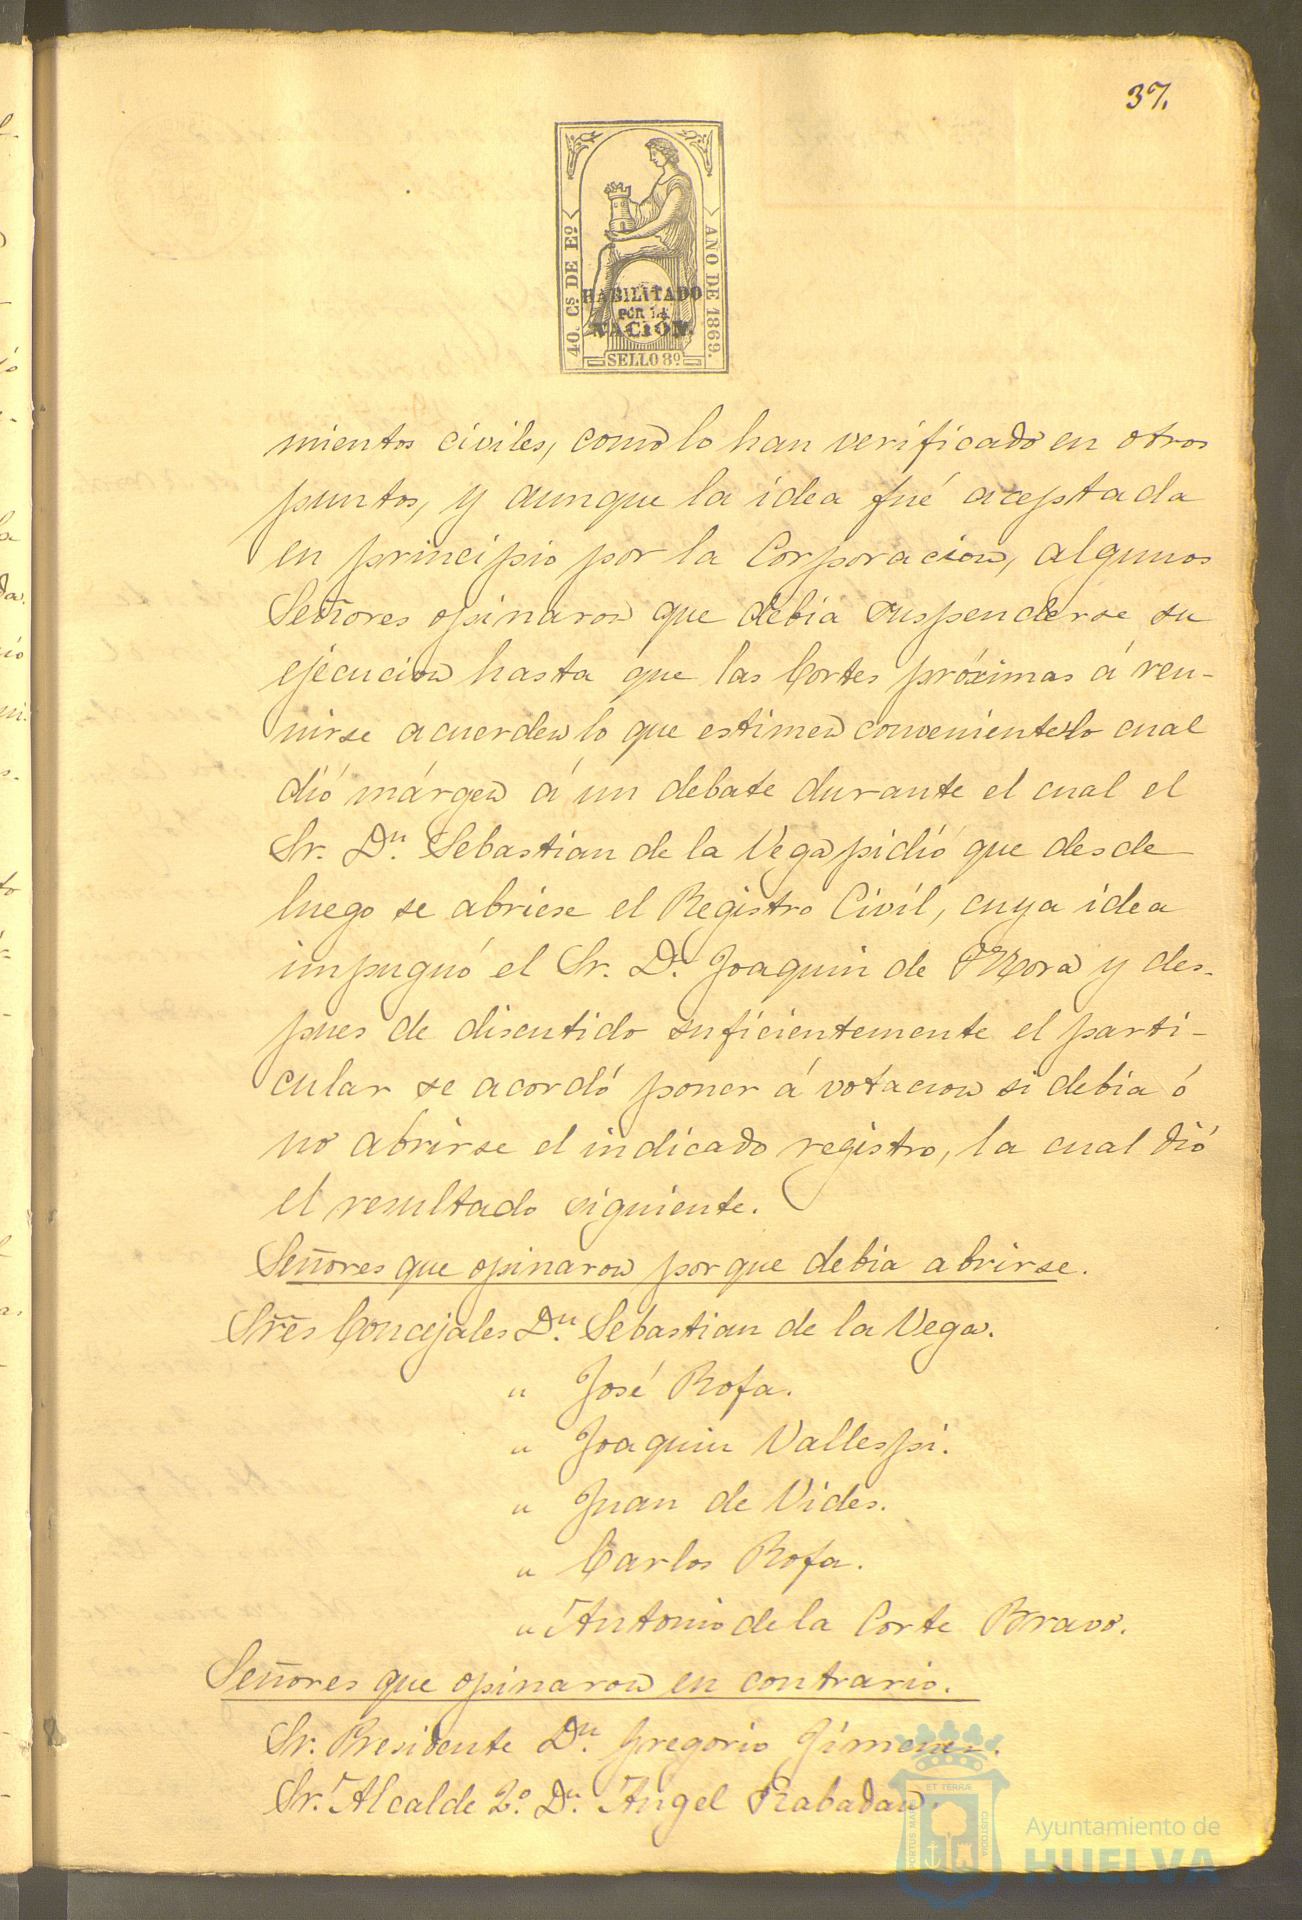 37.
40. Cs DE Eº
AÑO DE 1869.
HABILITADO
POR LA
NACION.
SELLO 8º
mientos civiles, como lo han verificado en otros
puntos, y aunque la idea fué aceptada
en principio por la Corporacion, algunos
Señores opinaron que debia suspenderse su
ejecucion hasta que las Cortes próximas á reu-
nirse acuerden lo que estimen conveniente lo cual
dió márgen á un debate durante el cual el
Sr. Dn. Sebastian de la Vega pidió que desde
luego se abriese el Registro Civil, cuya idea
impugnó el Sr. D. Joaquin de Mora y des-
pues de discutido suficientemente el parti-
cular se acordó poner á votacion si debia ó
no abrirse el indicado registro, la cual dió
el resultado siguiente.
Señores que opinaron porque debia abrirse.
Sres Concejales Dn. Sebastian de la Vega.
" José Rofa.
" Joaquin Vallespi.
" Juan de Vides.
" Carlos Rofa.
" Antonio de la Corte Bravo.
Señores que opinaron en contrario.
Sr. Presidente Dn. Gregorio Jimenez.
Sr. Alcalde 2º. Dn. Angel Rabadan.
ET TERRÆ
PORTUS MARIS
CUSTODIA
Ayuntamiento de
HUELVA